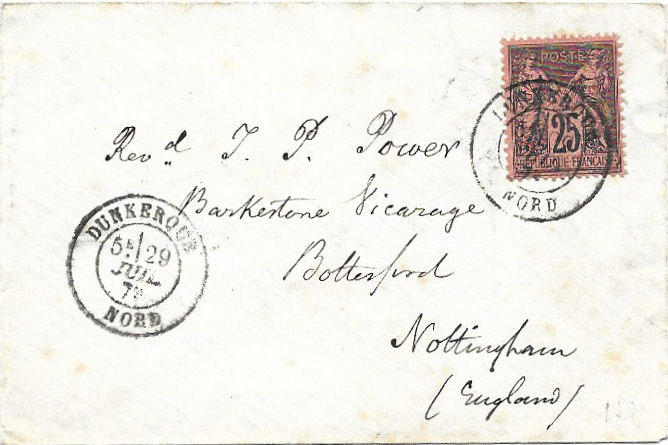 POSTE
25
REPUBLIQUE FRANCAISE
NORD
Rev.d J. P. Power
Barkestone Vicarage
Bottesford
Nottingham
(England)
DUNKERQUE
5E 29
JUIL
79
NORD